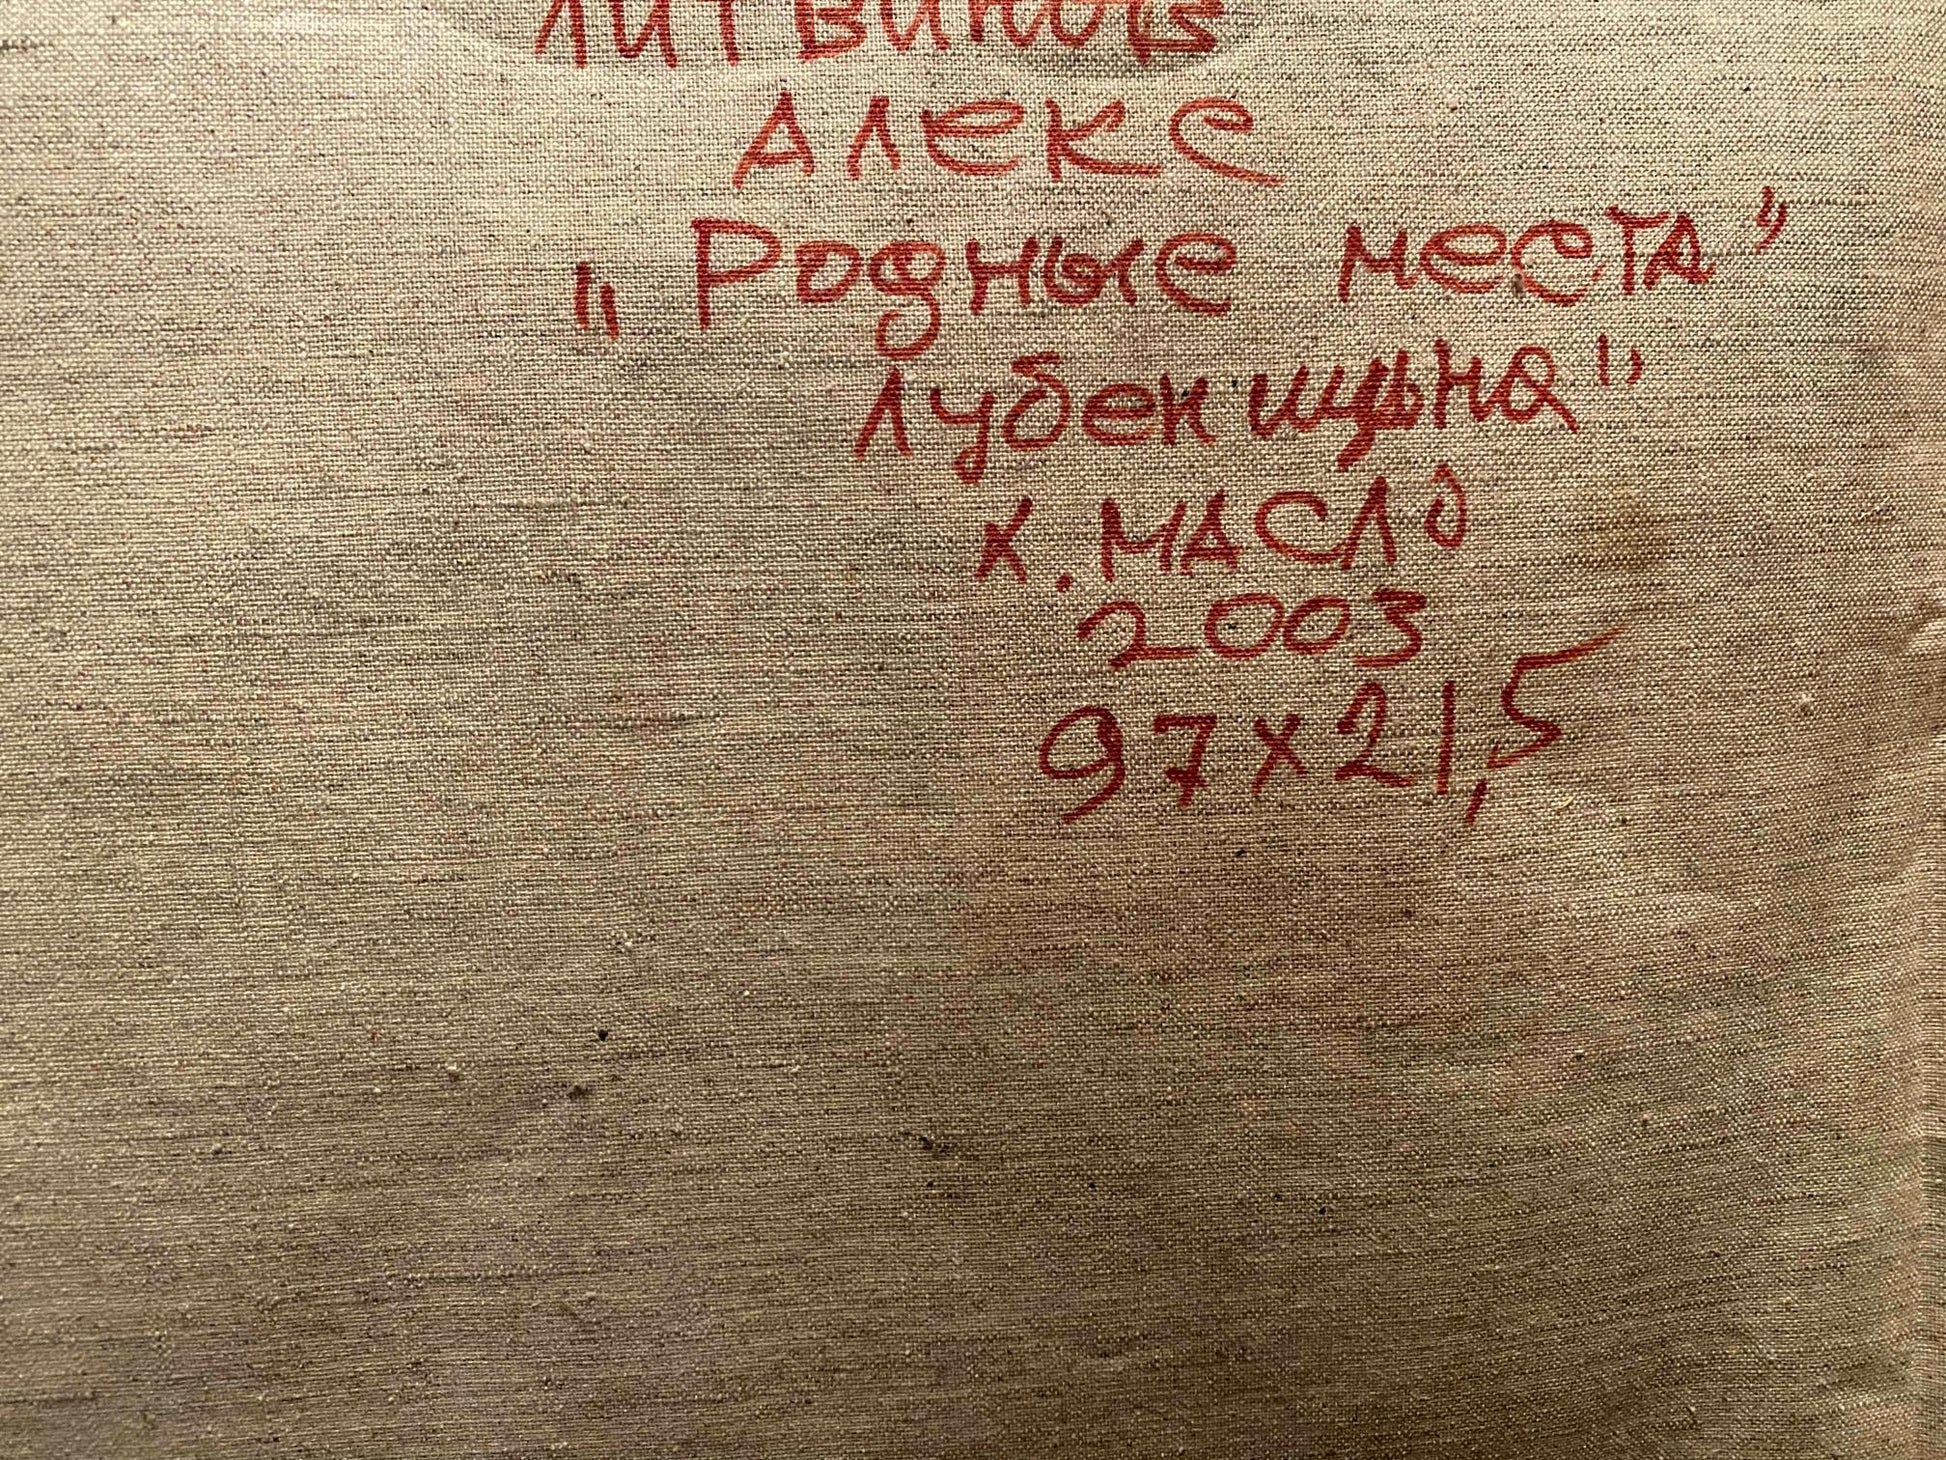 Литвинов
АЛЕКС
„Родные места"
Лубенщына"
Х. МАСЛО
2003
97х21,5